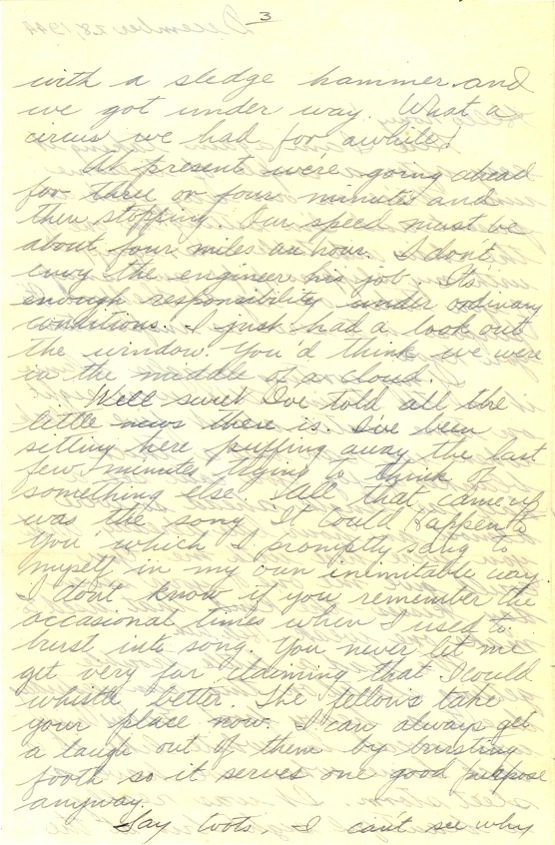 3
with a sledge hammer and
we got under way. What a
circus we had for awhile!
At present we're going ahead
for three or four minutes and
then stopping. Our speed must be
about four miles an hour. I don't
envy the engineer his job. Its
enough responsibility under ordinary
conditions. I just had a look out
the window. You'd think we were
in the middle of a cloud.
Well sweet I've told all the
little news there is. I've been
sitting here puffing away the last
few minutes trying to think of
something else. All that came up
was the song "It Could Happen to
You" which I promptly sang to
myself in my own inimitable way.
I don't know if you remember the
occasional times when I used to
burst into song. You never let me
get very far claiming that I could
whistle better. The fellows take
your place now. I can always get
a laugh out of them by bursting
forth so it serves one good purpose
anyway.
Say toots, I can't see why